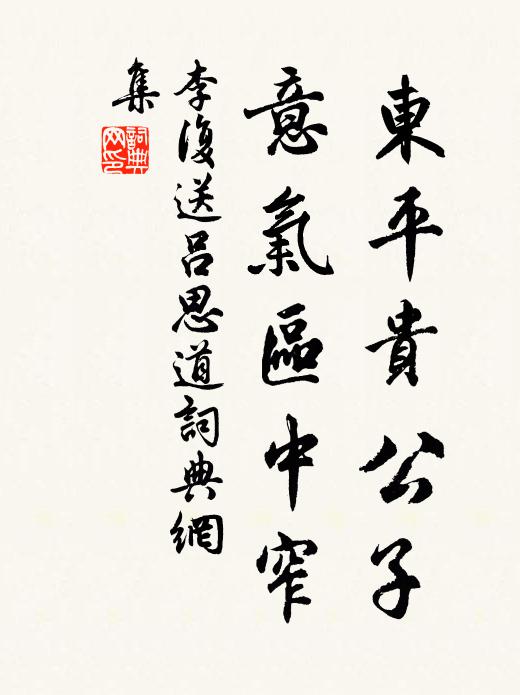 東平貴公子
意氣區中窄
李復送呂思道詞典網
集
詞典網印